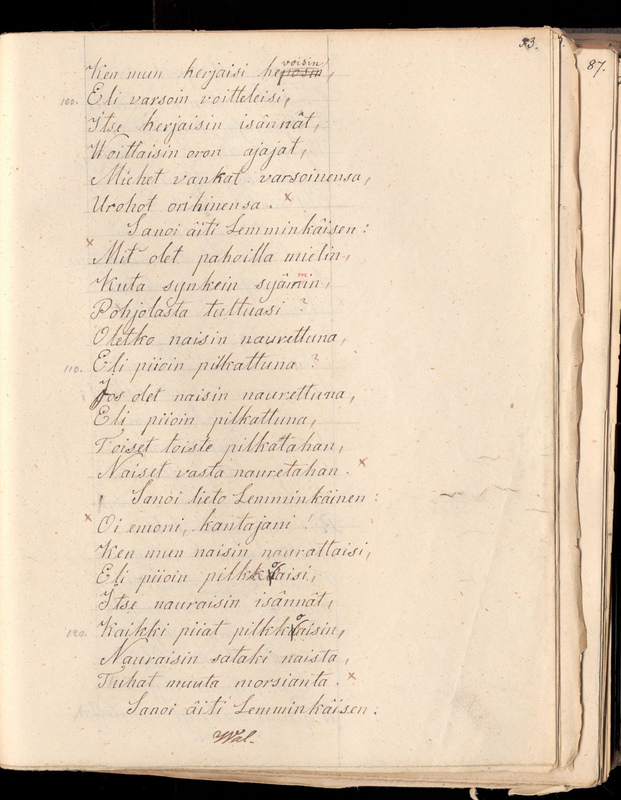 53.
87.
Ken mun herjaisi hevoisin,
100. Eli varsoin voitteleisi,
Itse herjaisin isännät,
Woittaisin oron ajajat,
Miehet vankat varsoinensa,
Urohot orihinensa. ×
Sanoi äiti Lemminkäisen:
× Mit olet pahoilla mielin,
Kuta synkein syämmin,
Pohjolasta tultuasi?
Oletko naisin naurettuna,
110. Eli piioin pilkattuna?
Jos olet naisin naurettuna,
Eli piioin pilkattuna,
Toiset toiste pilkatahan,
Naiset vasta nauretahan. ×
Sanoi lieto Lemminkäinen:
× Oi emoni, kantajani!
Ken mun naisin naurattaisi,
Eli piioin pilkkoaisi,
Itse nauraisin isännät,
120. Kaikki piiat pilkkoaisin,
Nauraisin sataki naista,
Tuhat muuta morsianta. ×
Sanoi äiti Lemminkäisen:
Wal.